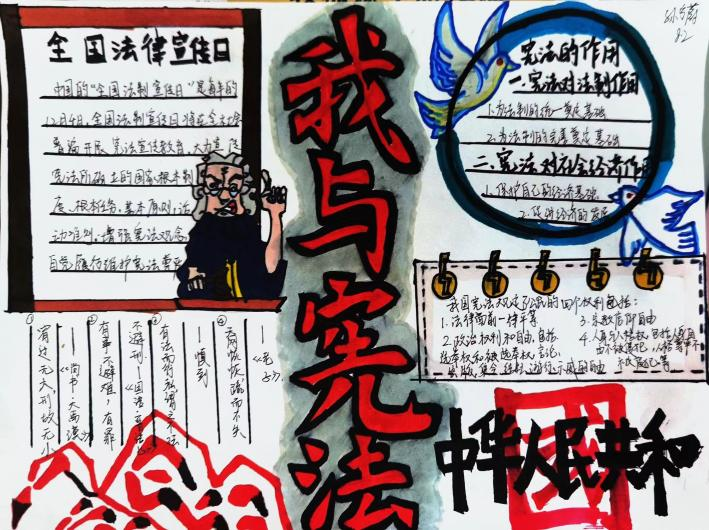 全国法律宣传日
中国的"全国法制宣传日"是每年的
12月4日。全国法制宣传日将在全力度
普遍开展宪法宣传教育，大力宣传
宪法所确立的国家根本制
度、根本任务、基本原则、活
动准则，增强宪法观念
自觉履行维护宪法尊严
我与宪法
宪法的作用
一.宪法对法制作用
1.为法制的统一奠定基础
2.为法制的完善奠定基础
二.宪法对社会经济作用
1.保护自己的经济基础
2.促进经济的发展
我国宪法规定公民的四个权利包括：
1.法律面前一律平等
2.政治权利和自由，包括
选举权和被选举权，言论，
出版，集会，结社，游行示威的自由
3.宗教信仰自由
4.人身与人格权，包括人身自
由不被侵犯，人格尊严不
①
宥过无大，刑故无小
——《尚书·大禹谟》
②
有事不避难，有罪
不避刑——《国语·
③
有法而行私谓之不法
——慎到
④
天网恢恢疏而不失
——《老子》
中华人民共和
國
8.2